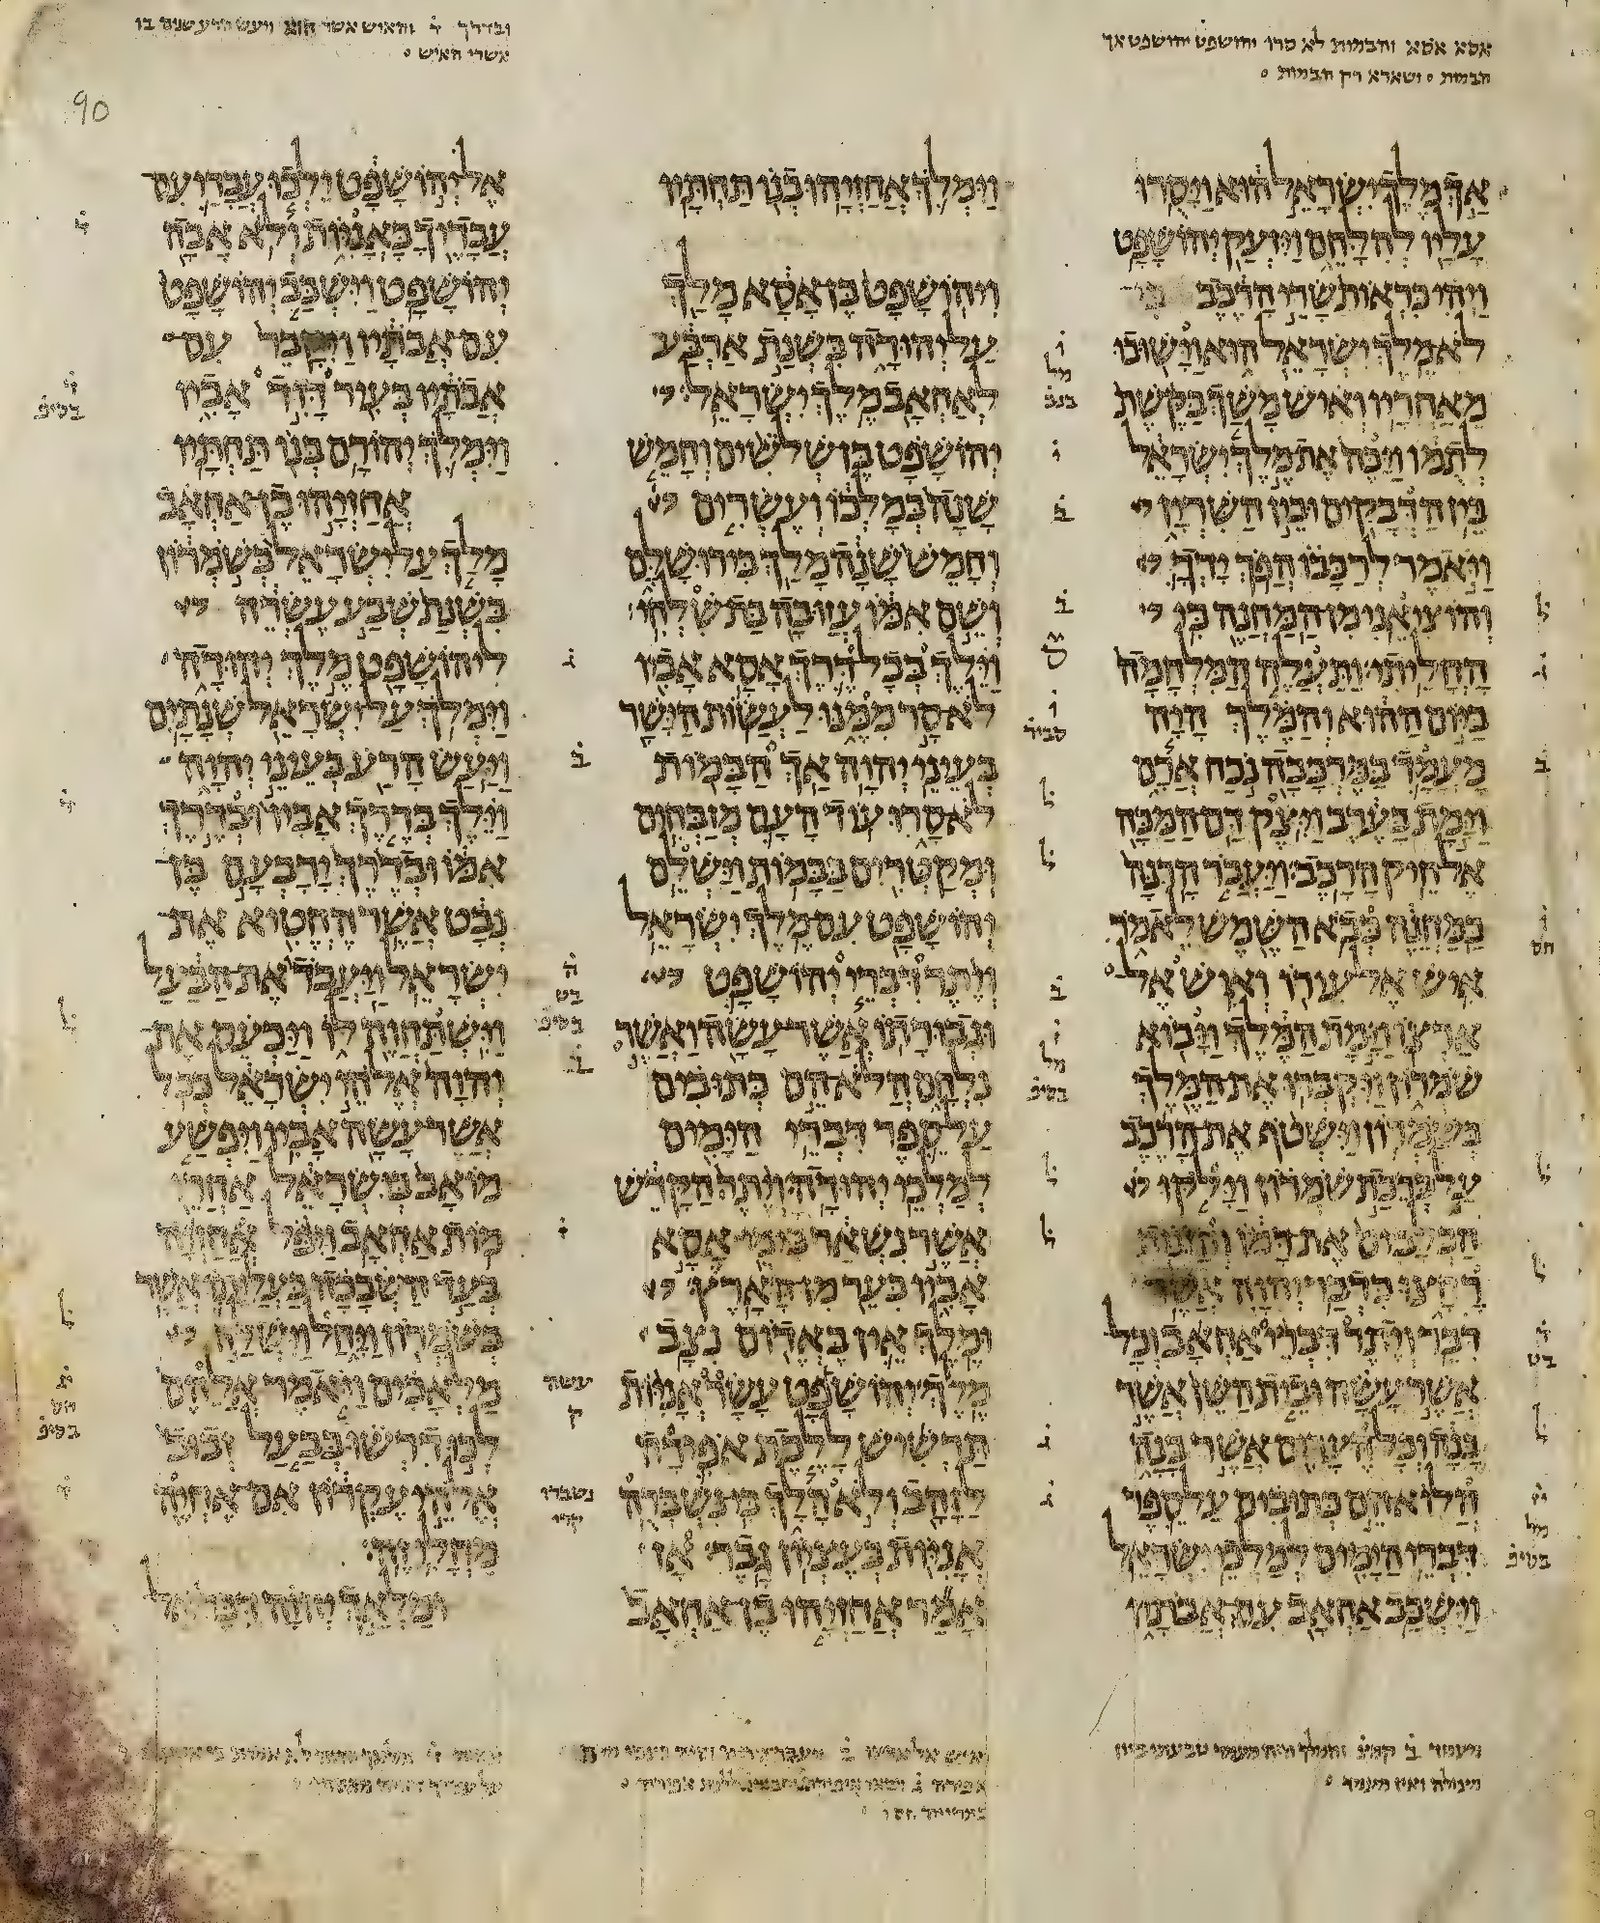 אסא אסא והבמות לא סרו יהושפט יהושפט אך
הבמות ושארא רק הבמות
ובדרך ד והאיש אשר
אשרי האיש
90
אך מלך ישראל הוא ויסרו
עליו להלחם ויזעק יהושפט
ויהי כראות שרי הרכב כי
לא מלך ישראל הוא וישובו
מאחריו ואיש משך בקשת
לתמו ויכה את מלך ישראל
בין הדבקים ובין השרין
ויאמר לרכבו הפך ידך
והוציאני מן המחנה כי
החליתי ותעלה המלחמה
ביום ההוא והמלך היה
מעמד במרכבה נכח ארם
וימת בערב ויצק דם המכה
אל חיק הרכב ויעבר הרנה
במחנה כבא השמש לאמר
איש אל עירו ואיש אל
ארצו וימת המלך ויבוא
שמרון ויקברו את המלך
בשמרון וישטף את הרכב
על ברכת שמרון וילקו
הכלבים את דמו והזנות
רחצו כדבר יהוה אשר
דבר ויתר דברי אחאב וכל
אשר עשה ובית השן אשר
בנה וכל הערים אשר בנה
הלוא הם כתובים על ספר
דברי הימים למלכי ישראל
וישכב אחאב עם אבתיו
וימלך אחזיהו בנו תחתיו
ויהושפט בן אסא מלך
על יהודה בשנת ארבע
לאחאב מלך ישראל
יהושפט בן שלשים וחמש
שנה במלכו ועשרים
וחמש שנה מלך בירושלם
ושם אמו עזובה בת שלחי
וילך בכל דרך אסא אביו
לא סר ממנו לעשות הישר
בעיני יהוה אך הבמות
לא סרו עוד העם מזבחים
ומקטרים בבמות וישלם
יהושפט עם מלך ישראל
ויתר דברי יהושפט
וגבורתו אשר עשה ואשר
נלחם הלא הם כתובים
על ספר דברי הימים
למלכי יהודה ויתר הקדש
אשר נשאר בימי אסא
אביו בער מן הארץ
ומלך אין באדום נצב
מלך יהושפט עשר אניות
תרשיש ללכת אפירה
לזהב ולא הלך כי נשברה
אניות בעציון גבר אז
אמר אחזיהו בן אחאב
אל יהושפט ילכו עבדי עם
עבדיך באניות ולא אבה
יהושפט וישכב יהושפט
עם אבתיו ויקבר עם
אבתיו בעיר דוד אביו
וימלך יהורם בנו תחתיו
אחזיהו בן אחאב
מלך על ישראל בשמרון
בשנת שבע עשרה
ליהושפט מלך יהודה
וימלך על ישראל שנתים
ויעש הרע בעיני יהוה
וילך בדרך אביו ובדרך
אמו ובדרך ירבעם בן
נבט אשר החטיא את
ישראל ויעבד את הבעל
וישתחוה לו ויכעס את
יהוה אלהי ישראל ככל
אשר עשה אביו ויפשע
מואב בישראל אחרי
מות אחאב ויפל אחזיה
בעד השבכה בעליתו אשר
בשמרון ויחל וישלח
מלאכים ויאמר אלהם
לכו דרשו בבעל זבוב
אלהי עקרון אם אחיה
מחלי זה
ומלאך יהוה דבר אל